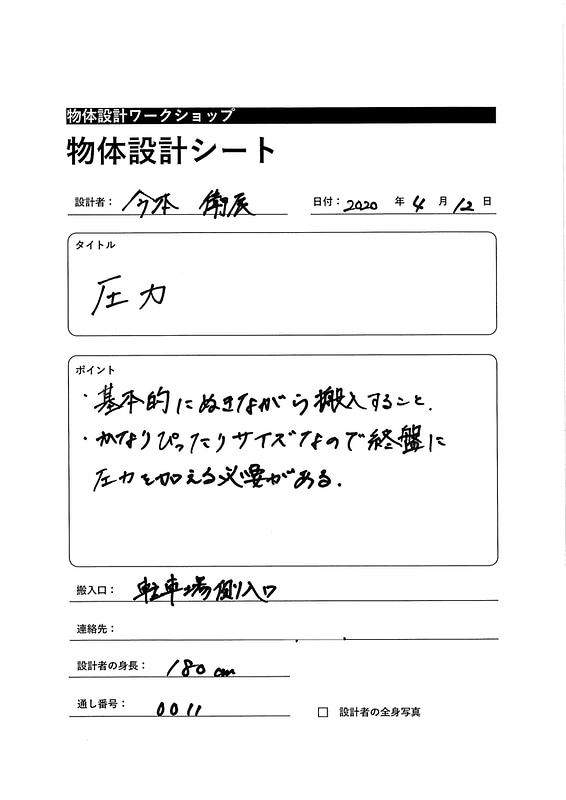 物体設計ワークショップ
物体設計シート
設計者： 今本 衛辰 日付：2020 年 4 月 12 日
タイトル
圧力
ポイント
・基本的にぬきながら搬入すること.
・かなりぴったりサイズなので終盤に
圧力を加える必要がある.
搬入口： 駐車場側入口
連絡先：
設計者の身長： 180 cm
通し番号： 0011
□ 設計者の全身写真